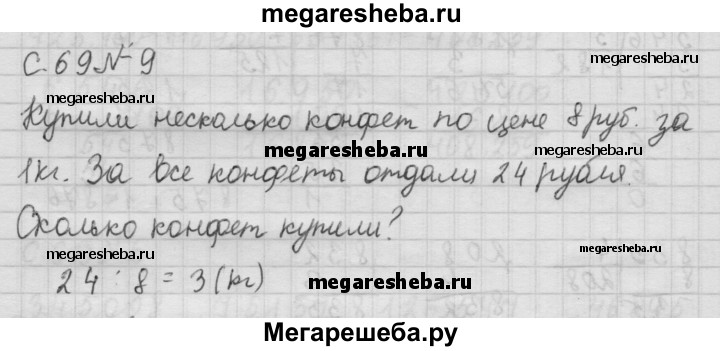 megaresheba.ru
С. 69 № 9
megaresheba.ru
megaresheba.ru
Купили несколько конфет по цене 8 руб. за
megaresheba.ru
megaresheba.ru
1кг. За все конфеты отдали 24 рубля.
Сколько конфет купили?
megaresheba.ru
megaresheba.ru
24 : 8 = 3 (кг)
megaresheba.ru
Мегарешеба.ру